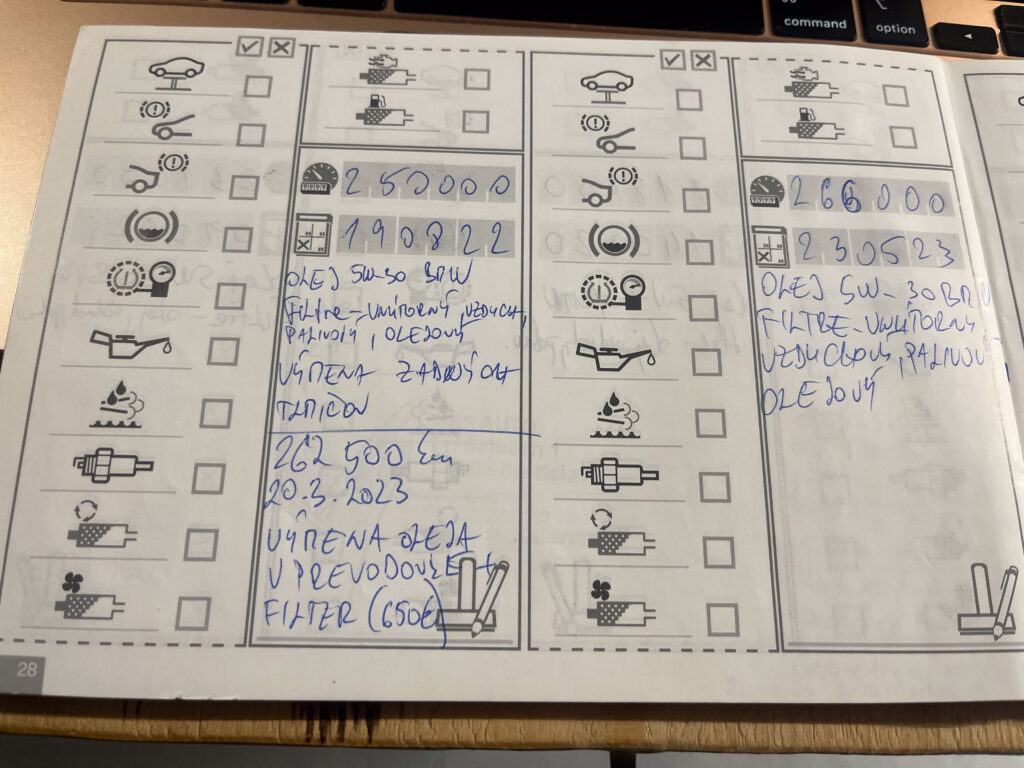 command
option
250000
190822
OLEJ 5W-30 BMW
FILTRE - VNÚTORNÝ, VZDUCH,
PALIVOVÝ, OLEJOVÝ
VÝMENA ZADNÝCH
TLMIČOV
262 500 km
20.3.2023
VÝMENA OLEJA
V PREVODOVKE +
FILTER (650€)
28
266000
230523
OLEJ 5W-30 BMW
FILTRE - VNÚTORNÝ
VZDUCHOVÝ, PALIVOVÝ,
OLEJOVÝ